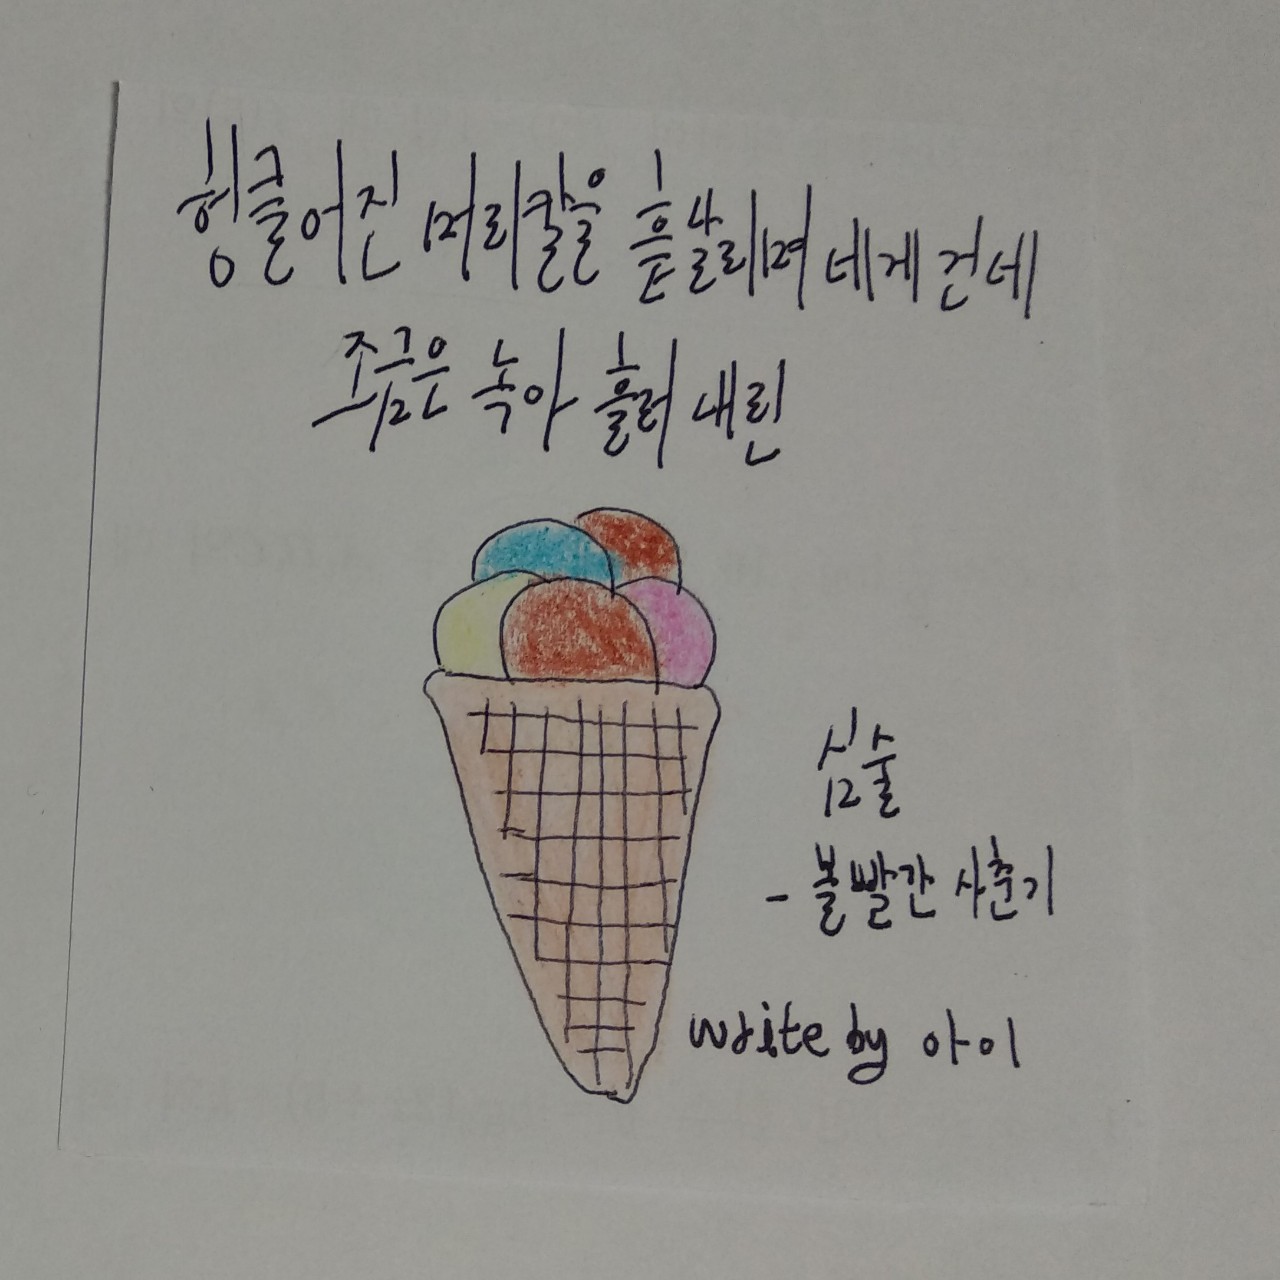 헝클어진 머리칼을 흩날리며 네게 건네
조금은 녹아 흘러 내린
심술
- 볼빨간 사춘기
write by 아이